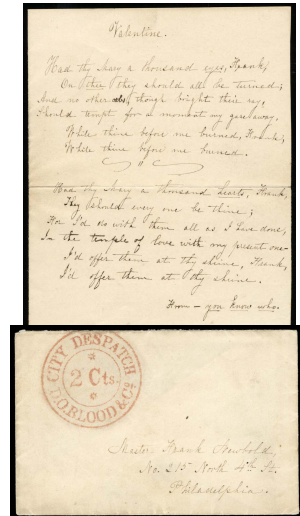 Valentine.
Had thy Mary a thousand eyes, Frank,
On thee they should all be turned;
And no other, though bright their ray,
Should tempt for a moment my gaze away,
While thine before me burned, Frank;
While thine before me burned.
Had thy Mary a thousand hearts, Frank,
They should every one be thine;
For I'd do with them all as I have done,
In the temple of love with my present one—
I'd offer them at thy shrine, Frank,
I'd offer them at thy shrine.
From – you know who.
CITY DESPATCH
2 Cts.
D.O. BLOOD & Co.
Mister Frank Newbold,
No. 215 North 4th St.
Philadelphia.